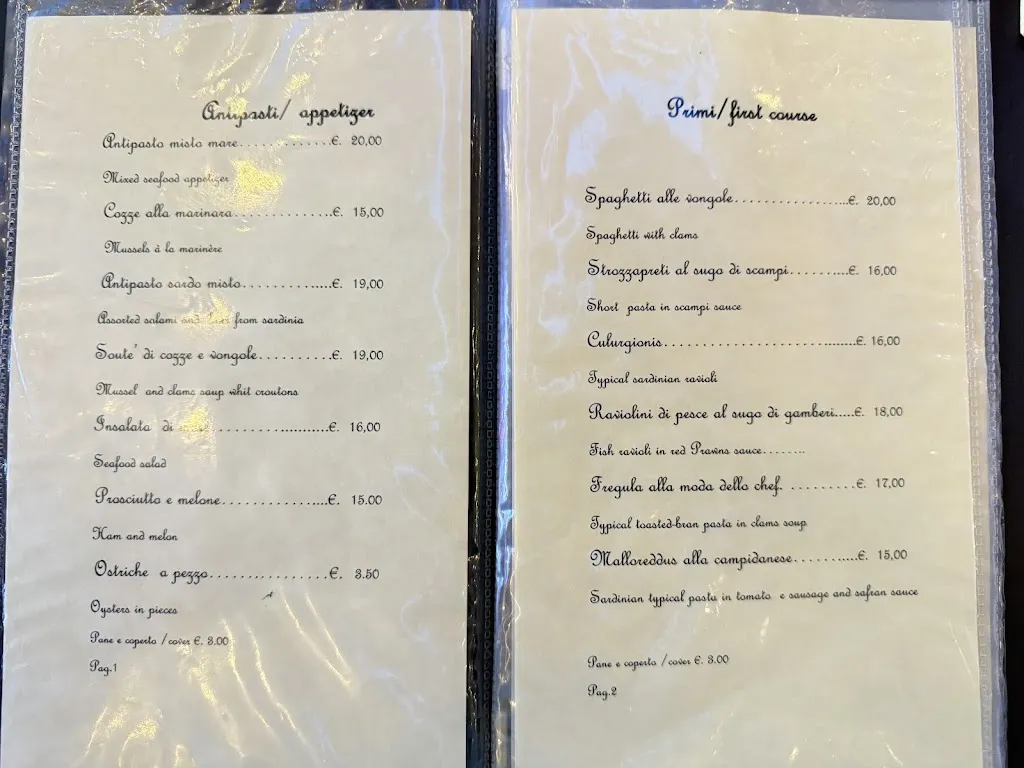 Antipasti/ appetizer
Antipasto misto mare.............€. 20,00
Mixed seafood appetizer
Cozze alla marinara..............€. 15,00
Mussels à la marinère
Antipasto sardo misto.............€. 19,00
Assorted salami and from sardinia
Soute' di cozze e vongole..........€. 19,00
Mussel and clams soup whit croutons
Insalata di ....................€. 16,00
Seafood salad
Prosciutto e melone...............€. 15.00
Ham and melon
Ostriche a pezzo.................€. 3.50
Oysters in pieces
Pane e coperto /cover €. 3.00
Pag.1
Primi/first course
Spaghetti alle vongole.................€. 20,00
Spaghetti with clams
Strozzapreti al sugo di scampi.........€. 16,00
Short pasta in scampi sauce
Culurgionis.............................€. 16,00
Typical sardinian ravioli
Raviolini di pesce al sugo di gamberi.....€. 18,00
Fish ravioli in red Prawns sauce........
Fregula alla moda dello chef. ..........€. 17,00
Typical toasted-bran pasta in clams soup
Malloreddus alla campidanese...........€. 15,00
Sardinian typical pasta in tomato e sausage and safran sauce
Pane e coperto /cover €. 3.00
Pag.2